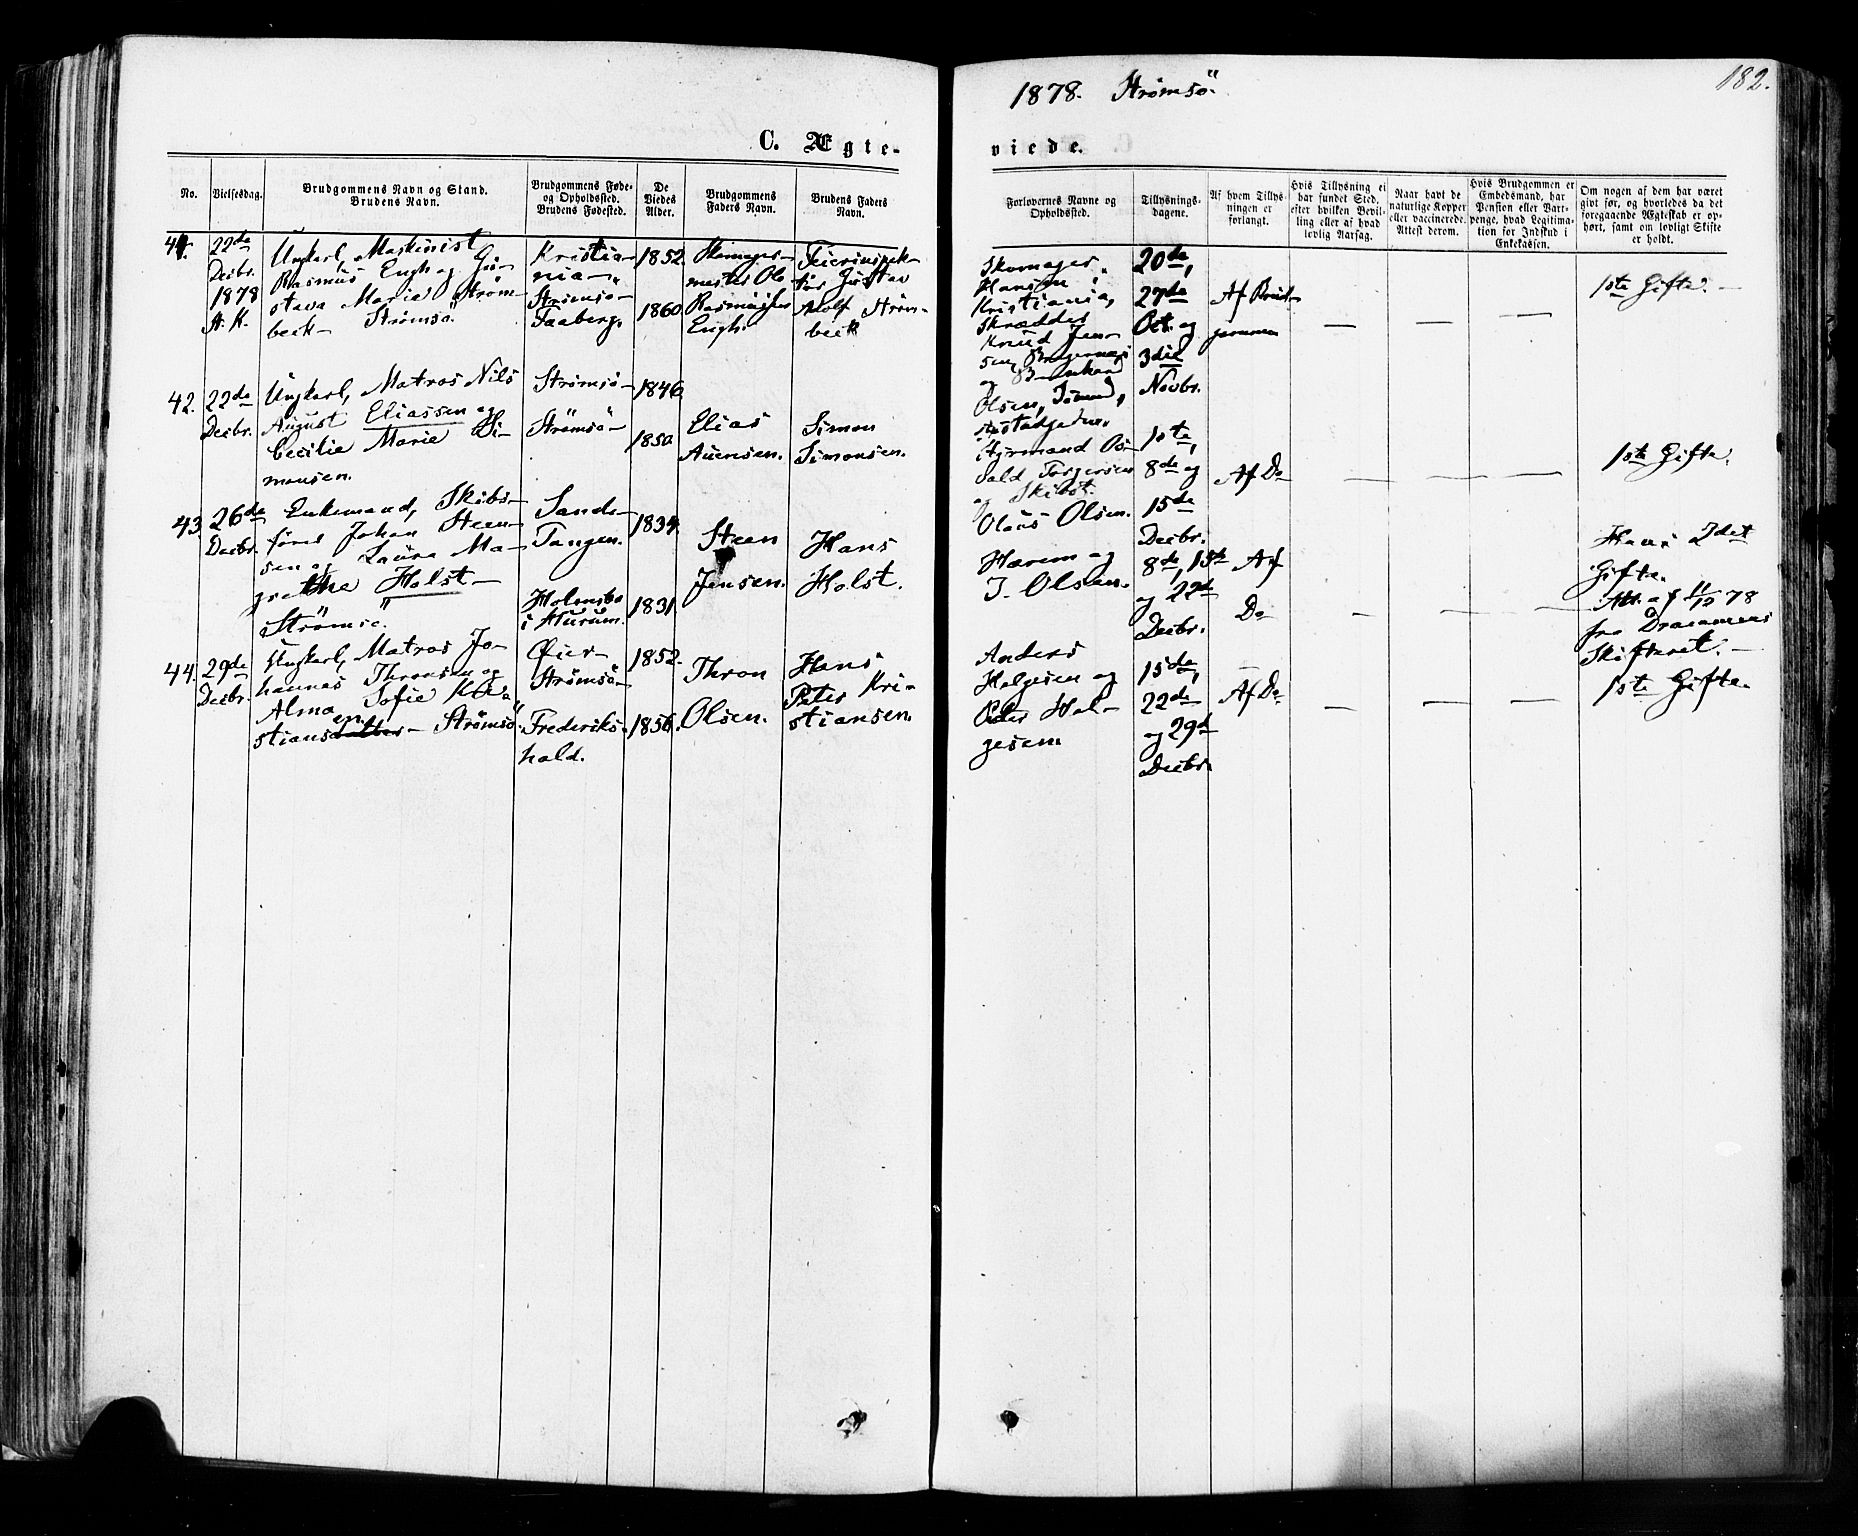 1878. Strømsö.
182.
C. Ægte-
viede.
No.
Vielsesdag.
Brudgommens Navn og Stand.
Brudens Navn.
Brudgommens Føde-
og Opholdssted.
Brudens Fødested.
De
Viedes
Alder.
Brudgommens
Faders Navn.
Brudens Faders
Navn.
Forlovernes Navne og
Opholdssted.
Tillysnings-
dagene.
Af hvem Tillys-
ningen er
forlangt.
Hvis Tillysning ei
har fundet Sted,
efter hvilken Bevil-
ling eller af hvad
lovlig Aarsag.
Naar havt de
naturlige Kopper
eller vaccinerede.
Attest derom.
Hvis Brudgommen er
Embedsmand, har
Pension eller Vart-
penge, hvad Legitima-
tion for Indskud i
Enkekassen.
Om nogen af dem har været
gift før, og hvorledes da det
foregaaende Ægteskab er op-
hørt, samt om lovligt Skifte
er holdt.
41.
22de
Decbr.
1878
A. K.
Ungkarl, Maskinist
Rasmus Engh og Gü-
stava Maria Strøm-
beck- Strømsö.
Kristia-
nia-
Strømsö-
Faaberg.
1852.
1860
Skomager-
mester Ole
Rasmussen
Engh.
Feierinspek-
tör Güstav
Adolf Strøm-
beck
Skomager
Hansen,
Kristiania,
Skrædder
Knüd Jen-
sen, Bragernæs
og
Olsen,
20de,
27de
Oct. og
3die
Novbr.
Af Brud-
gommen
—
—
—
1ste Gifte. —
42.
22de
Decbr.
Ungkarl, Matros Nils
August Eliassen og
Cecilie Marie Si-
monsen.
Strømsö-
Strømsö-
1846
1850
Elias
Auensen.
Simon
Simonsen.
Styrmand Os-
vald Torgersen
og Skibst.
Olaüs Olsen.
1ste,
8de og
15de
Decbr.
Af Do
—
—
—
1ste Gifte.
43.
26de
Decbr.
Enkemand, Skibs-
fører Johan Steen-
sen og Laüra Ma-
grethe Holst-
Strömsö.
Sande-
Tangen.
Holmsbo
i Hurum.
1834.
1831
Steen
Jensen.
Hans
Holst.
Harem og
J. Olsen.
8de, 15de
og 22de
Decbr.
Af
Do
—
—
—
Hans 2det
Gifte.
Att. af 11/12 78
fra Drammens
Skifteret. —
44.
29de
Decbr.
Ungkarl, Matros Jo-
hannes Thronsen og
Alma Sofie Kri-
stiansen - Strømsö.
Øier-
Strømsö-
Frederiks-
hald.
1852.
1856.
Thron
Olsen.
Hans
Peter Kri-
stiansen.
Anders
Helgesen og
Peder Hel-
gesen
15de,
22de
og 29de
Decbr.
Af Do
—
—
—
1ste Gifte.